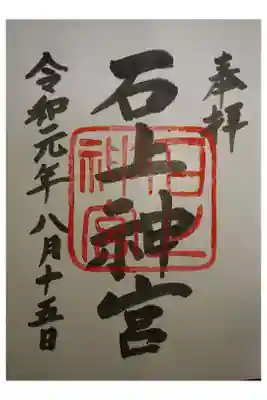 奉拝
石上神宮
石上神宮
令和元年八月十五日